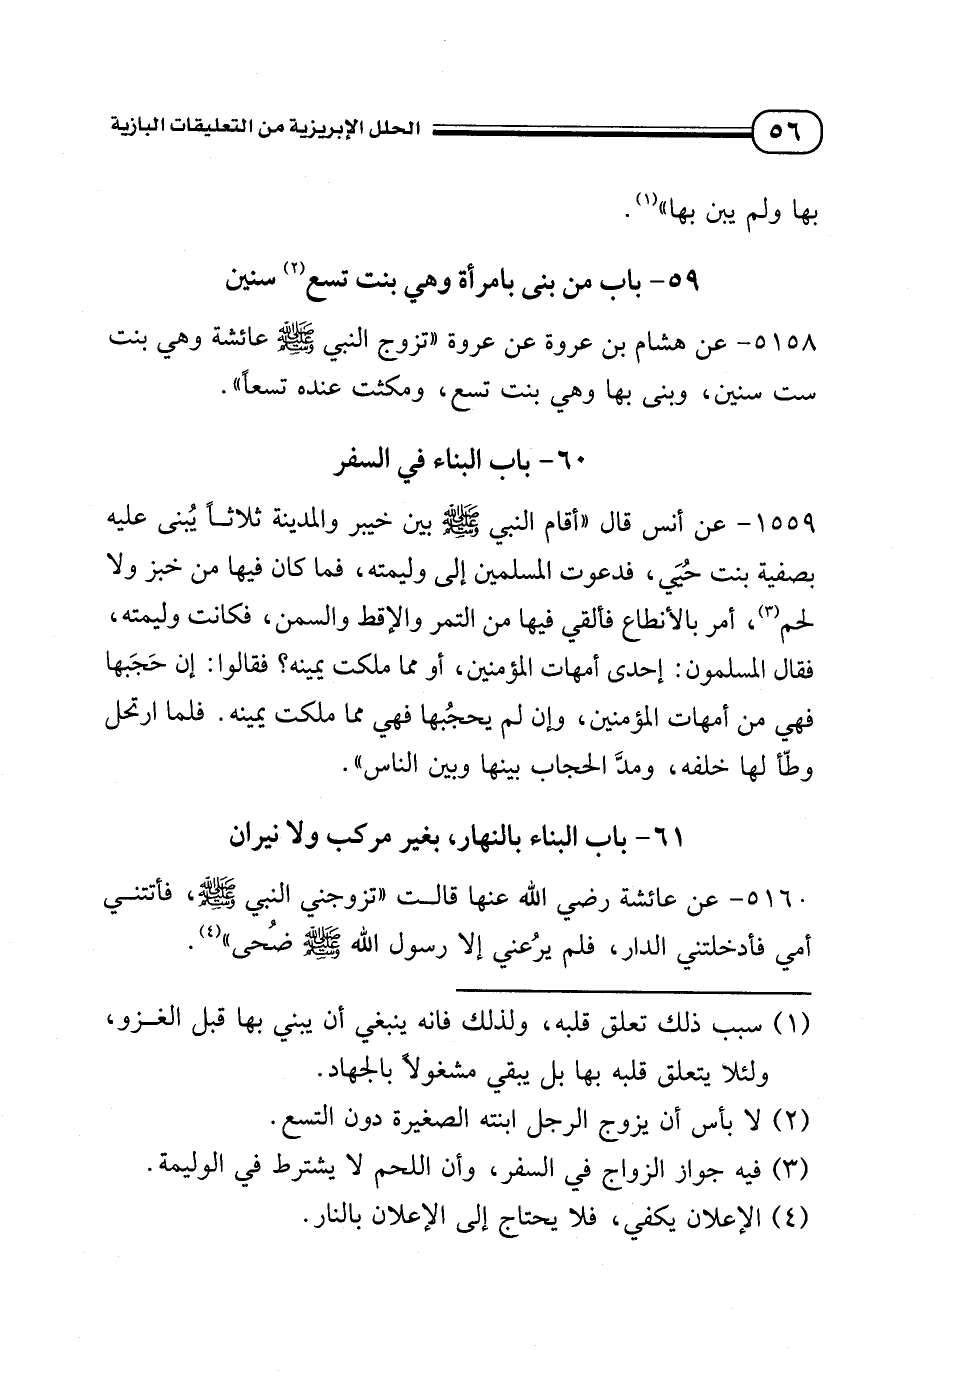 ٥٦ الحلل الإبريزية من التعليقات البازية
بها ولم يبن بها»(١).
٥٩- باب من بنى بامرأة وهي بنت تسع(٢) سنين
٥١٥٨- عن هشام بن عروة عن عروة «تزوج النبي ﷺ عائشة وهي بنت
ست سنين، وبنى بها وهي بنت تسع، ومكثت عنده تسعاً».
٦٠- باب البناء في السفر
١٥٥٩- عن أنس قال «أقام النبي ﷺ بين خيبر والمدينة ثلاثـاً يُبنى عليه
بصفية بنت حُيَي، فدعوت المسلمين إلى وليمته، فما كان فيها من خبز ولا
لحم(٣)، أمر بالأنطاع فألقي فيها من التمر والإقط والسمن، فكانت وليمته،
فقال المسلمون: إحدى أمهات المؤمنين، أو مما ملكت يمينه؟ فقالوا: إن حَجَبها
فهي من أمهات المؤمنين، وإن لم يحجُبها فهي مما ملكت يمينه. فلما ارتحل
وطّأ لها خلفه، ومدَّ الحجاب بينها وبين الناس».
٦١- باب البناء بالنهار، بغير مركب ولا نيران
٥١٦٠- عن عائشة رضي الله عنها قالـت «تزوجني النبي ﷺ، فأتتنـي
أمي فأدخلتني الدار، فلم يرُعني إلا رسول الله ﷺ ضُحى»(٤).
(١) سبب ذلك تعلق قلبه، ولذلك فانه ينبغي أن يبني بها قبل الغـزو،
ولئلا يتعلق قلبه بها بل يبقي مشغولاً بالجهاد.
(٢) لا بأس أن يزوج الرجل ابنته الصغيرة دون التسع.
(٣) فيه جواز الزواج في السفر، وأن اللحم لا يشترط في الوليمة.
(٤) الإعلان يكفي، فلا يحتاج إلى الإعلان بالنار.